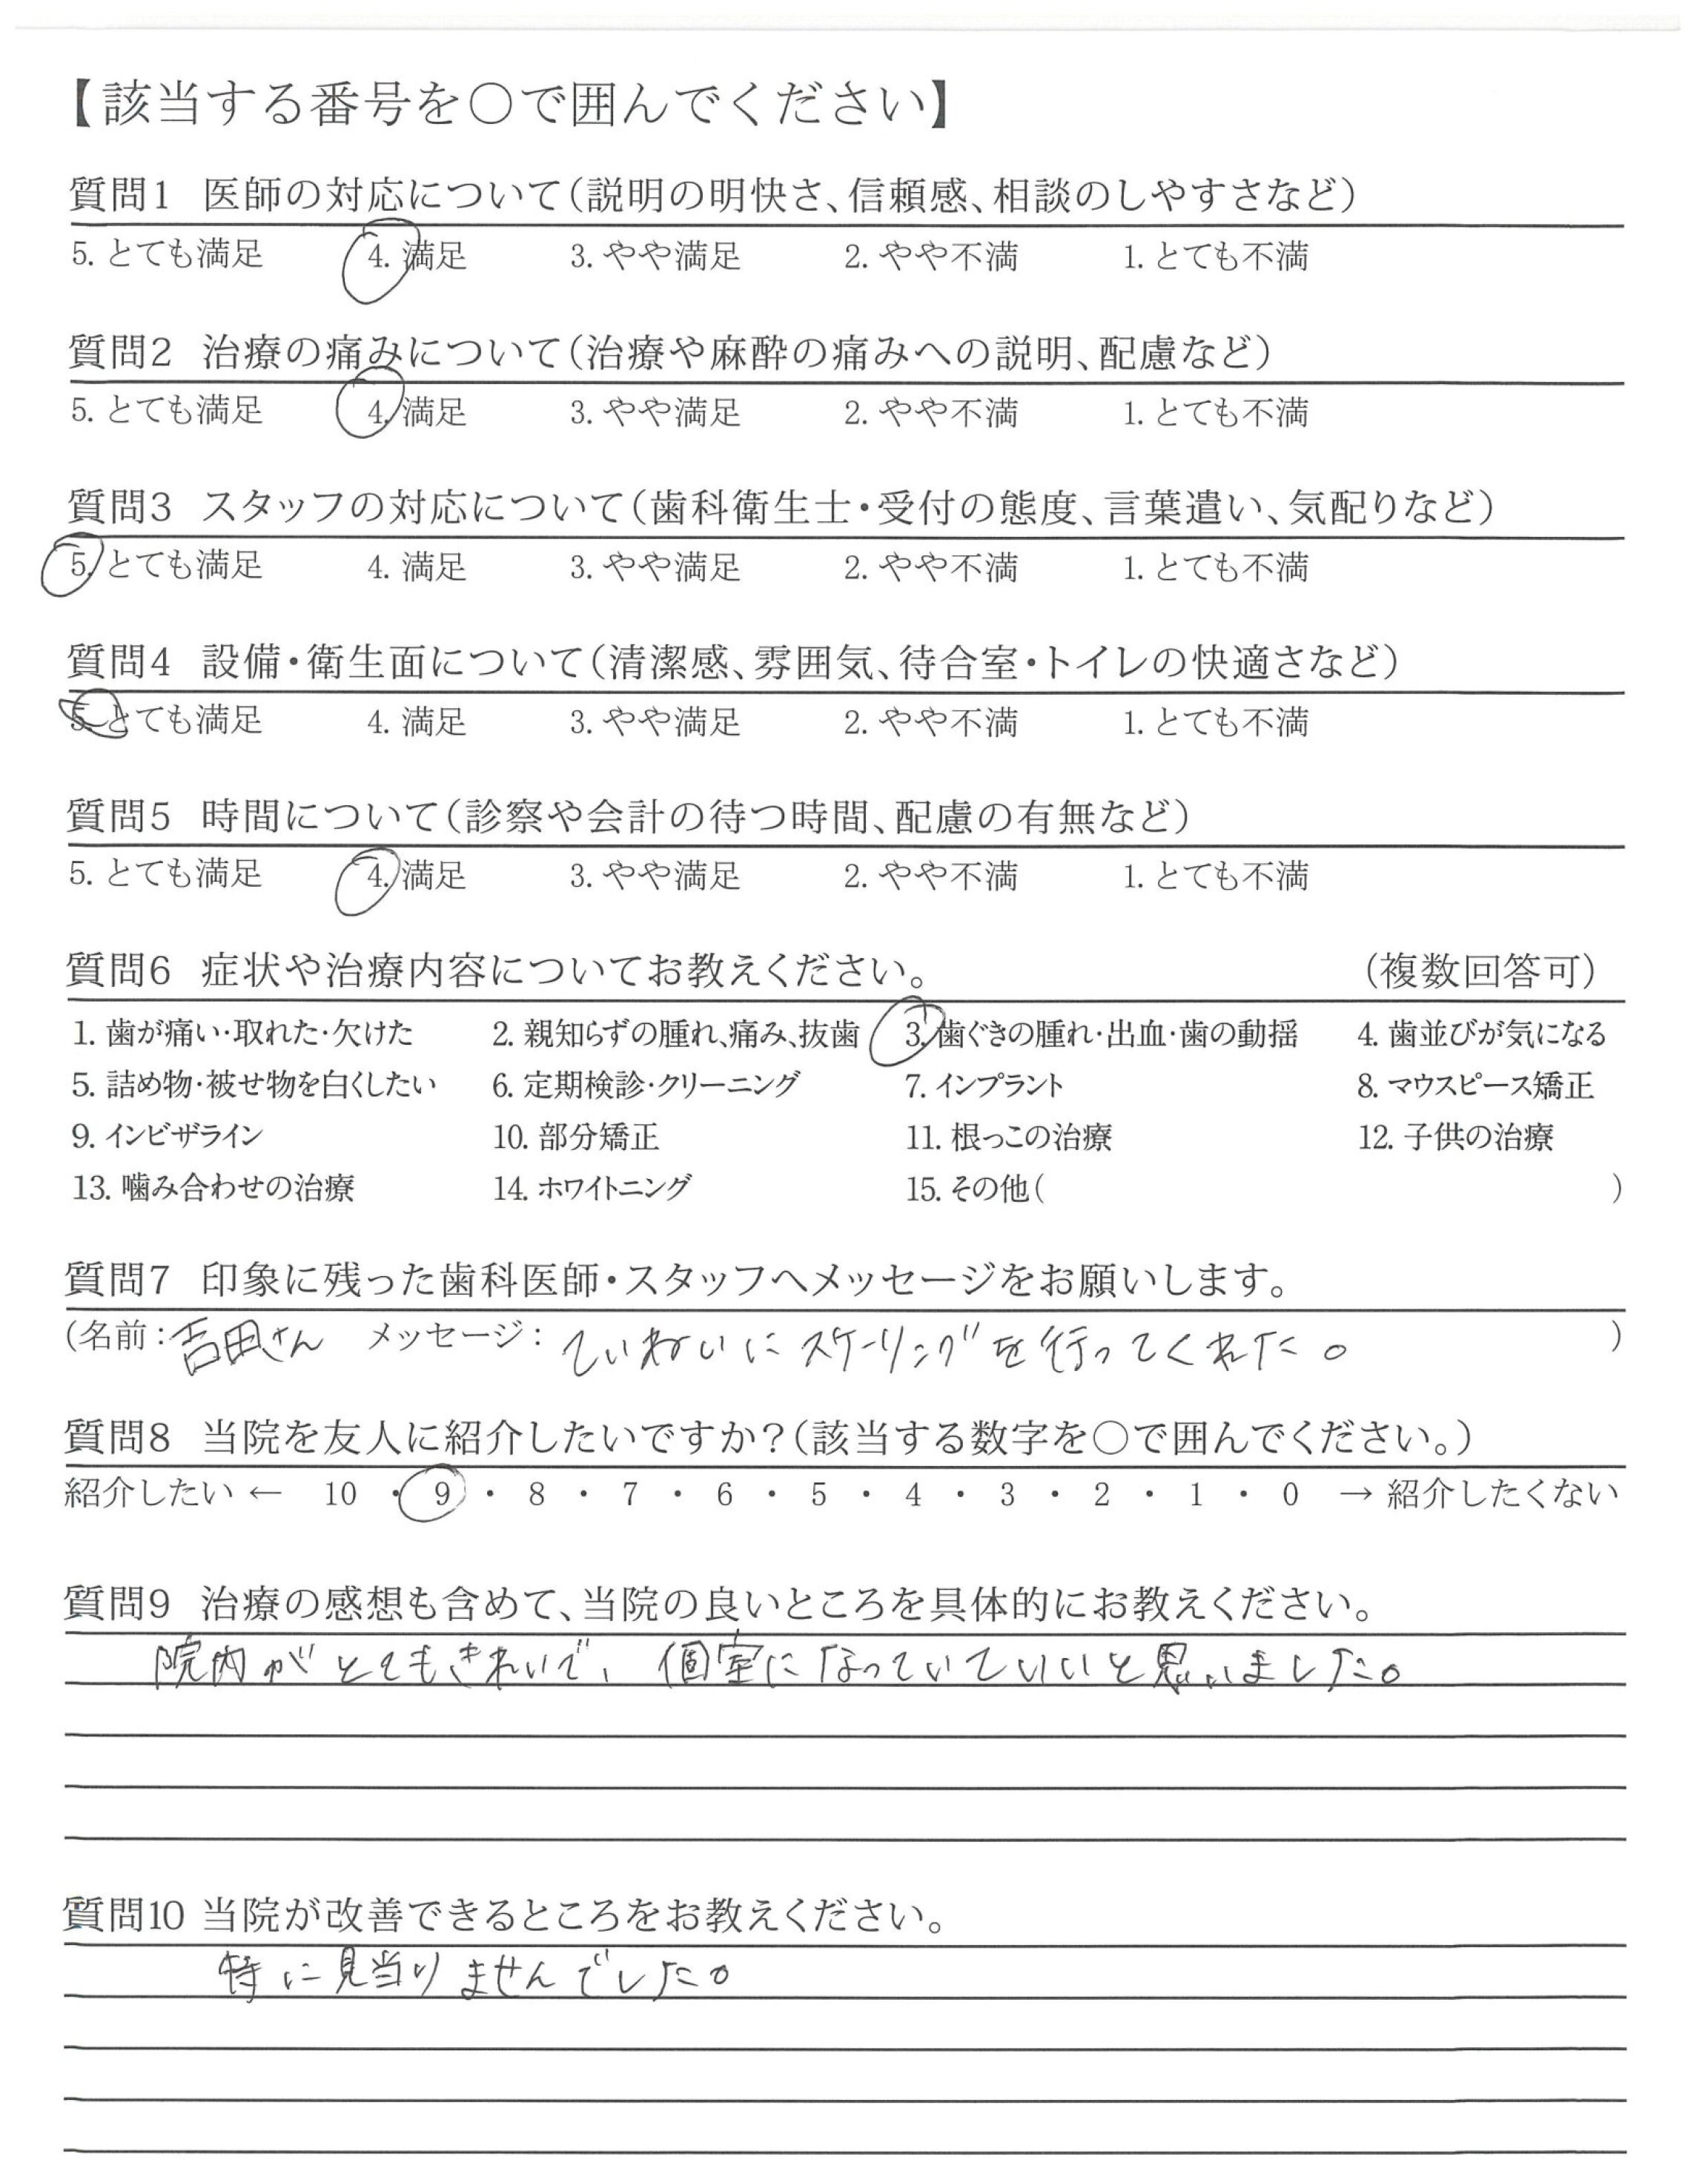 【該当する番号を○で囲んでください】
質問1 医師の対応について(説明の明快さ、信頼感、相談のしやすさなど)
5. とても満足 4. 満足 3. やや満足 2. やや不満 1. とても不満
質問2 治療の痛みについて(治療や麻酔の痛みへの説明、配慮など)
5. とても満足 4. 満足 3. やや満足 2. やや不満 1. とても不満
質問3 スタッフの対応について(歯科衛生士・受付の態度、言葉遣い、気配りなど)
5. とても満足 4. 満足 3. やや満足 2. やや不満 1. とても不満
質問4 設備・衛生面について(清潔感、雰囲気、待合室・トイレの快適さなど)
5. とても満足 4. 満足 3. やや満足 2. やや不満 1. とても不満
質問5 時間について(診察や会計の待つ時間、配慮の有無など)
5. とても満足 4. 満足 3. やや満足 2. やや不満 1. とても不満
質問6 症状や治療内容についてお教えください。 (複数回答可)
1. 歯が痛い・取れた・欠けた 2. 親知らずの腫れ、痛み、抜歯 3. 歯ぐきの腫れ・出血・歯の動揺 4. 歯並びが気になる
5. 詰め物・被せ物を白くしたい 6. 定期検診・クリーニング 7. インプラント 8. マウスピース矯正
9. インビザライン 10. 部分矯正 11. 根っこの治療 12. 子供の治療
13. 噛み合わせの治療 14. ホワイトニング 15. その他( )
質問7 印象に残った歯科医師・スタッフへメッセージをお願いします。
(名前:吉田さん メッセージ: ていねいにスケーリングを行ってくれた。 )
質問8 当院を友人に紹介したいですか?(該当する数字を○で囲んでください。)
紹介したい ← 10 ・ 9 ・ 8 ・ 7 ・ 6 ・ 5 ・ 4 ・ 3 ・ 2 ・ 1 ・ 0 → 紹介したくない
質問9 治療の感想も含めて、当院の良いところを具体的にお教えください。
院内がとてもきれいで、個室になっていていいと思いました。
質問10 当院が改善できるところをお教えください。
特に見当りませんでした。